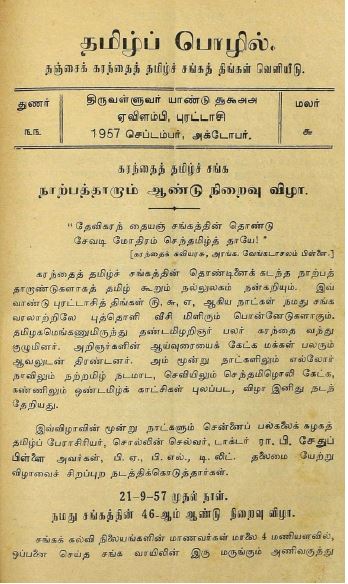 தமிழ்ப் பொழில்.
தஞ்சைக் கரந்தைத் தமிழ்ச் சங்கத் திங்கள் வெளியீடு.
துணர் திருவள்ளுவர் யாண்டு ௧௯௮௮ மலர்
௩௩ ஏவிளம்பி, புரட்டாசி ௬
1957 செப்டம்பர், அக்டோபர்.
கரந்தைத் தமிழ்ச் சங்க
நாற்பத்தாறாம் ஆண்டு நிறைவு விழா.
" தேவிகரந் தையஞ் சங்கத்தின் தொண்டு
சேவடி மோதிரம் செந்தமிழ்த் தாயே! "
[கரந்தைக் கவியரசு, அரங். வேங்கடாசலம் பிள்ளை.]
கரந்தைத் தமிழ்ச் சங்கத்தின் தொண்டினைக் கடந்த நாற்பத்
தாறாண்டுகளாகத் தமிழ் கூறும் நல்லுலகம் நன்கறியும். இவ்
வாண்டு புரட்டாசித் திங்கள் ௫, ௬, ௭, ஆகிய நாட்கள் நமது சங்க
வரலாற்றிலே புத்தொளி வீசி மிளிரும் பொன்னேடுகளாகும்.
தமிழகமெங்கணுமிருந்து தண்டமிழறிஞர் பலர் கரந்தை வந்து
குழுமினர். அறிஞர்களின் ஆய்வுரையைக் கேட்க மக்கள் பலரும்
ஆவலுடன் திரண்டனர். அம் மூன்று நாட்களிலும் எல்லோர்
நாவிலும் நற்றமிழ் நடமாட, செவியிலும் செந்தமிழொலி கேட்க,
கண்ணிலும் ஒண்டமிழ்க் காட்சிகள் புலப்பட, விழா இனிது நடந்
தேறியது.
இவ்விழாவின் மூன்று நாட்களும் சென்னைப் பல்கலைக் கழகத்
தமிழ்ப் பேராசிரியர், சொல்லின் செல்வர், டாக்டர் ரா. பி. சேதுப்
பிள்ளை அவர்கள், பி. ஏ., பி. எல்., டி. லிட். தலைமை யேற்று
விழாவைச் சிறப்புற நடத்திக்கொடுத்தார்கள்.
21-9-57 முதல் நாள்.
நமது சங்கத்தின் 46-ஆம் ஆண்டு நிறைவு விழா.
சங்கக் கல்வி நிலையங்களின் மாணவர்கள் மாலை 4 மணியளவில்,
ஒப்பனை செய்த சங்க வாயிலின் இரு மருங்கும் அணிவகுத்து